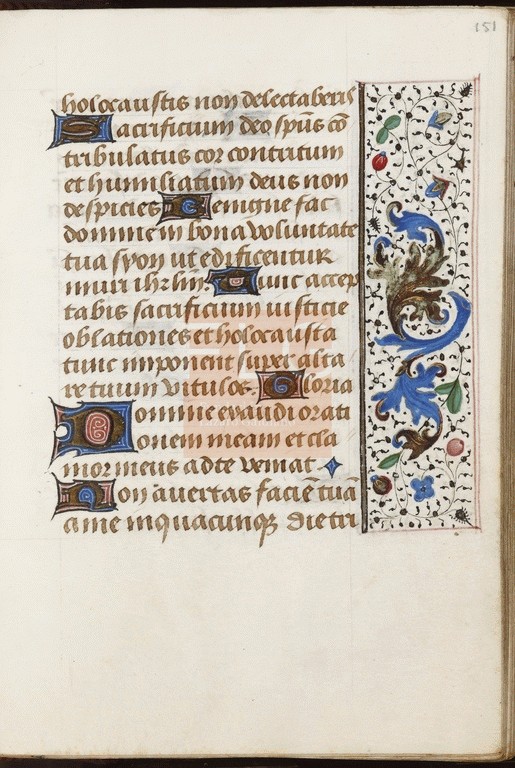 151
holocaustis non delectaberis
Sacrificium deo spūs cō
tribulatus cor contritum
et humiliatum deus non
despicies Benigne fac
domine in bona voluntate
tua syon ut edificentur
muri ihrlm̄. Tunc accep
tabis sacrificium iusticie
oblationes et holocausta
tunc imponent super alta
re tuum vitulos. Gloria
Domine exaudi orati
onem meam et cla
mor meus ad te veniat
Non avertas faciē tuā
a me in quacunq die tri